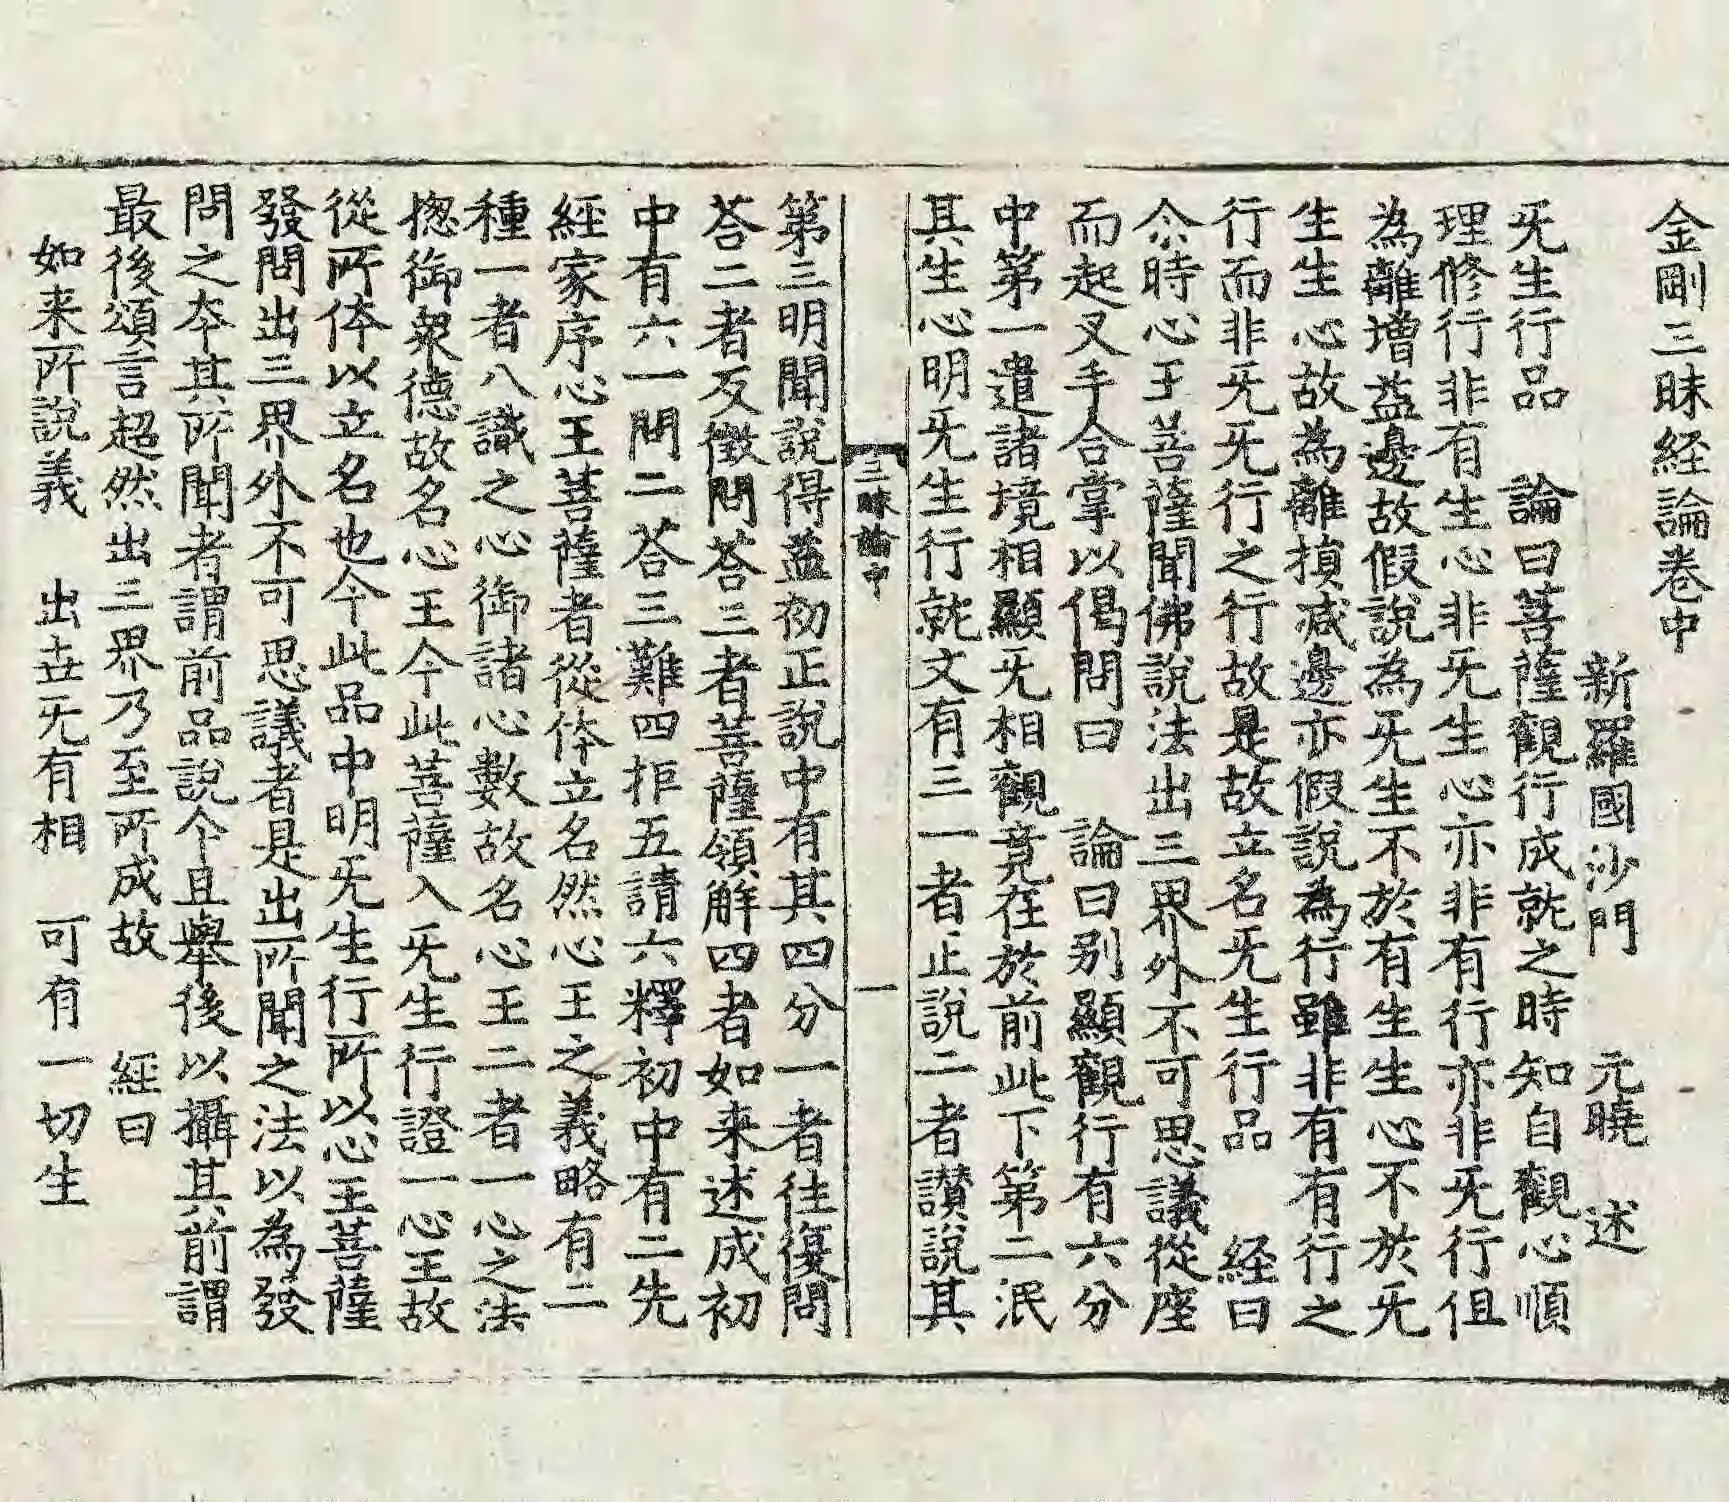 金剛三昧経論卷中
新羅國沙門　元曉　述
旡生行品　論曰菩薩觀行成就之時知自觀心順
理修行非有生心非旡生心亦非有行亦非旡行但
為離增益邊故假說為旡生不於有生生心不於旡
生生心故為離損减邊亦假說為行雖非有有行之
行而非旡旡行之行故是故立名旡生行品　経曰
尒時心王菩薩聞佛說法出三界外不可思議從座
而起叉手合掌以偈問曰　論曰别顯觀行有六分
中第一遣諸境相顯旡相觀竟在於前此下第二泯
其生心明旡生行就文有三一者正說二者讃說其
三昧論中　一
第三明聞說得益初正說中有其四分一者往復問
荅二者反徵問荅三者菩薩領解四者如来述成初
中有六一問二荅三難四拒五請六釋初中有二先
經家序心王菩薩者從体立名然心王之義略有二
種一者八識之心御諸心數故名心王二者一心之法
揔御衆德故名心王今此菩薩入旡生行證一心王故
從所体以立名也今此品中明旡生行所以心王菩薩
發問出三界外不可思議者是出所聞之法以為發
問之夲其所聞者謂前品說今且擧後以攝其前謂
最後頌言超然出三界乃至所成故　經曰
如来所說義　出世旡有相　可有一切生